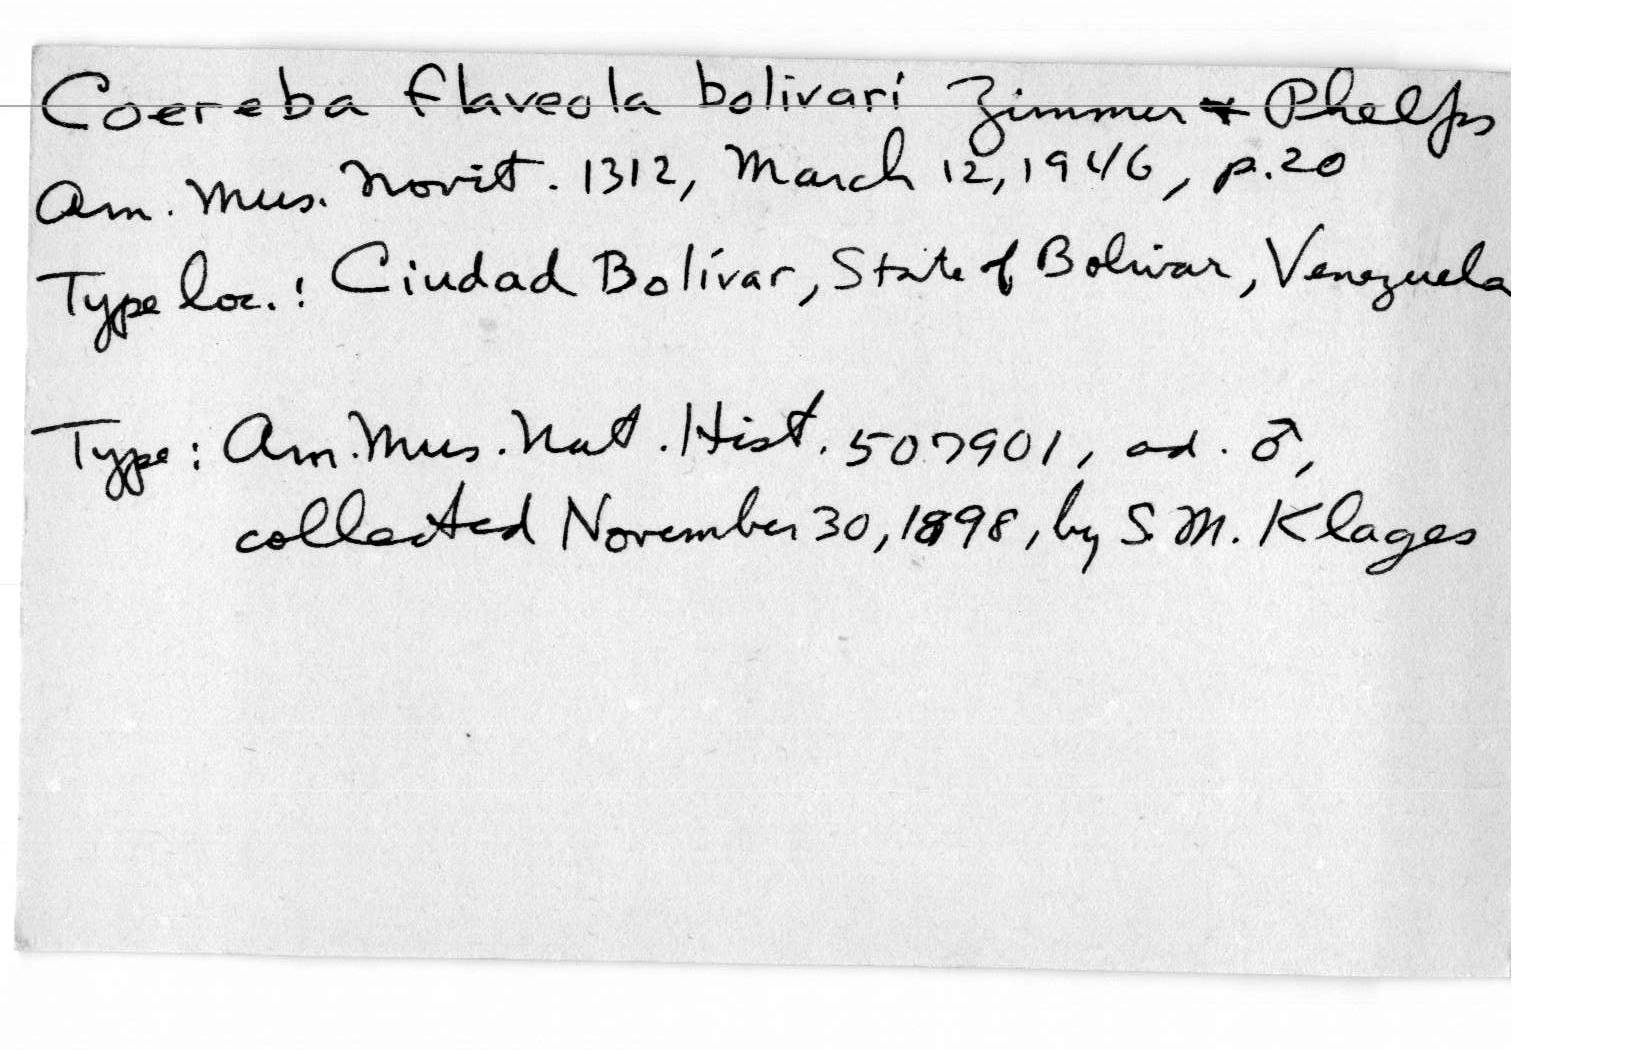 Coereba flaveola bolivari Zimmer & Phelps
Am. Mus. Novit. 1312, March 12, 1946, p.20
Type loc.: Ciudad Bolívar, State of Bolivar, Venezuela
Type: Am. Mus. Nat. Hist. 507901, ad. ♂,
collected November 30, 1898, by S. M. Klages